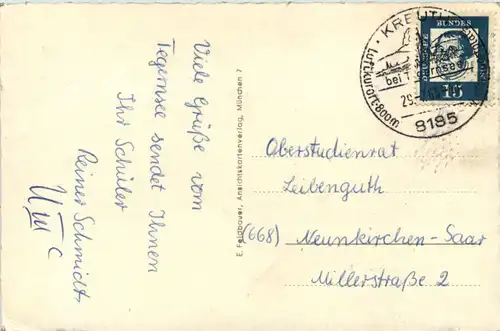 Viele Grüße vom
Tegernsee sendet Ihnen
Ihr Schüler
Reiner Schmidt,
U III c
E. Feldbauer, Ansichtskartenverlag, München 7
KREUTH
bei
Luftkurort-800m
29.
8185
DEUTSCHE BUNDES
15
Oberstudienrat
Leibenguth
(668) Neunkirchen-Saar
Millerstraße 2